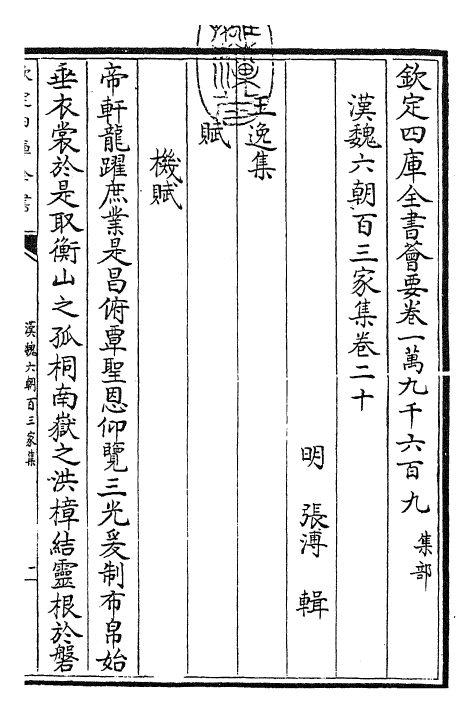 欽定四庫全書薈要卷一萬九千六百九 集部
漢魏六朝百三家集卷二十
明 張溥 輯
王逸集
賦
機賦
帝軒龍躍庶業是昌俯覃聖恩仰覽三光爰制布帛始
垂衣裳於是取衡山之孤桐南嶽之洪樟結靈根於磐
漢魏六朝百三家集